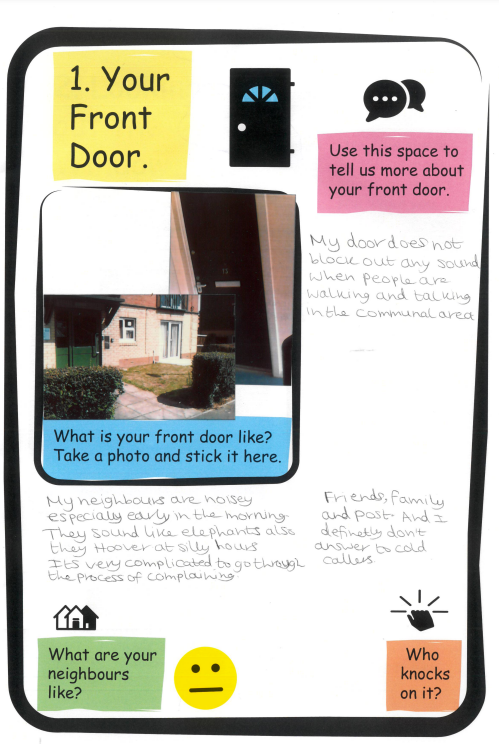 1. Your
Front
Door.
Use this space to
tell us more about
your front door.
My door does not
block out any sound
when people are
walking and talking
in the communal area
What is your front door like?
Take a photo and stick it here.
My neighbours are noisey
especially early in the morning.
They sound like elephants also
they Hoover at silly hours
Its very complicated to go through
the process of complaining
Friends, family
and post. And I
definetly don't
answer to cold
callers.
What are your
neighbours
like?
Who
knocks
on it?